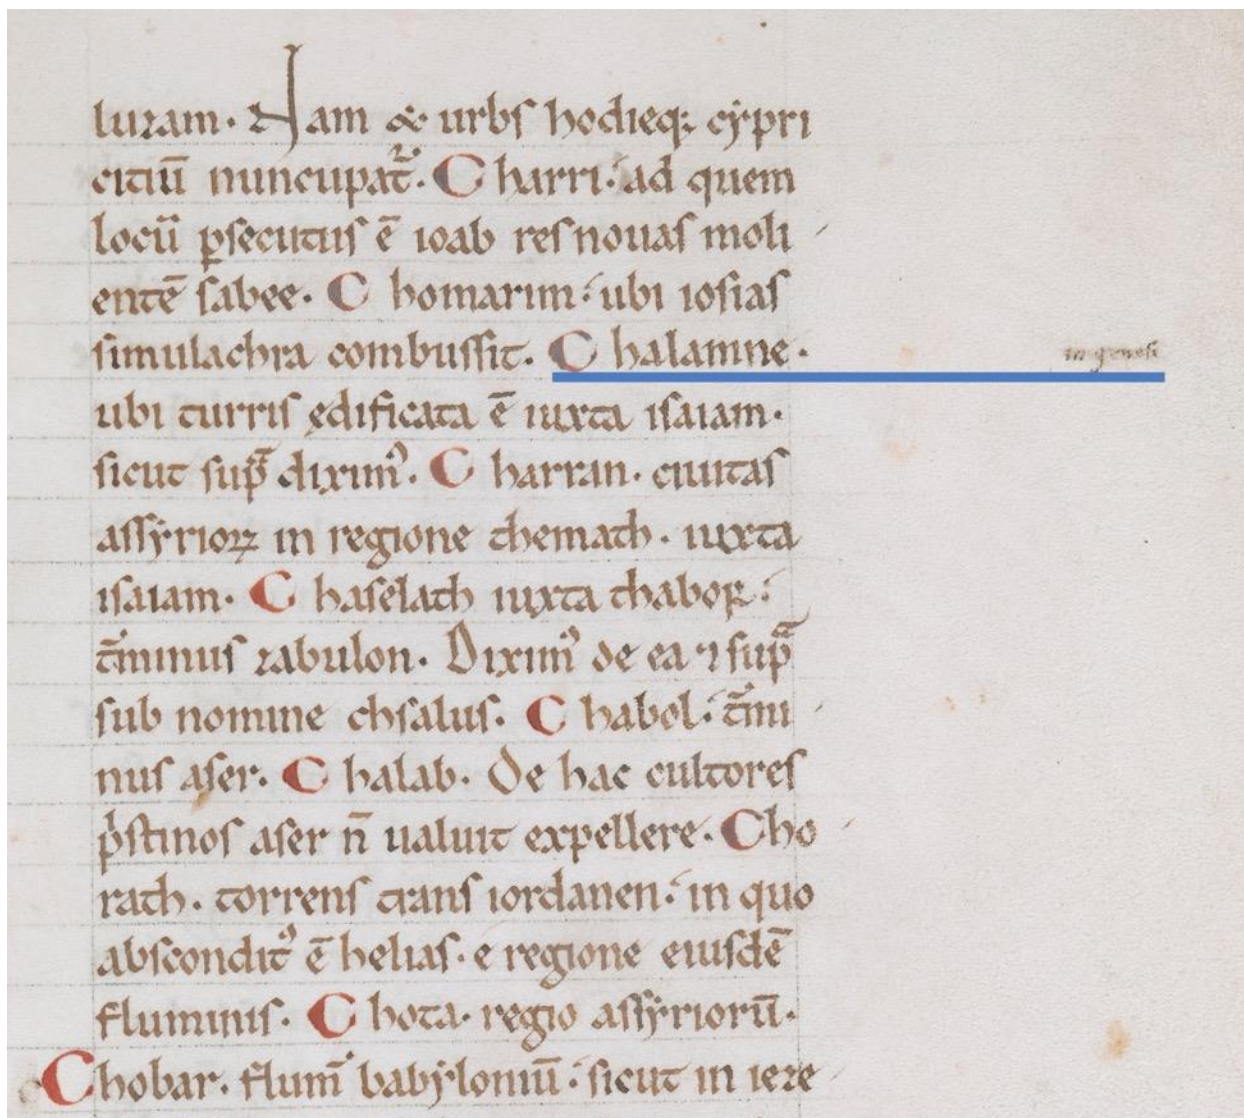 luram. Nam & urbs hodieq; cypri
citiū nuncupat̄. Charri: ad quem
locū p̱secutus ē ioab res nouas moli
entē sabee. Chomarim: ubi iosias
simulachra combussit. Chalamne. in genesi
ubi turris ędificata ē iuxta isaiam.
sicut sup̄ diximꝰ. Charran. ciuitas
assẏrioꝝ in regione themath. iuxta
isaiam. Chaselath iuxta thabor:
t̄minus zabulon. Diximꝰ de ea ⁊ sup̄
sub nomine chsalus. Chabol: t̄mi
nus aser. Chalab. De hac cultores
p̍stinos aser n̄ ualuit expellere. Cho
rath. torrens trans iordanen: in quo
absconditꝰ ē helias. e regione eiusdē
fluminis. Chota. regio assẏriorū.
Chobar. flum̄ babẏloniū: sicut in ieze